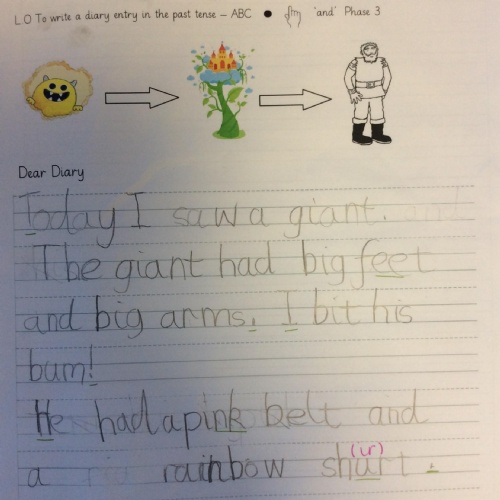 L.O To write a diary entry in the past tense – ABC ● 'and' Phase 3
Dear Diary
Today I saw a giant.
The giant had big feet
and big arms. I bit his
bum!
He had a pink belt and
a rainbow shurt.
(ir)